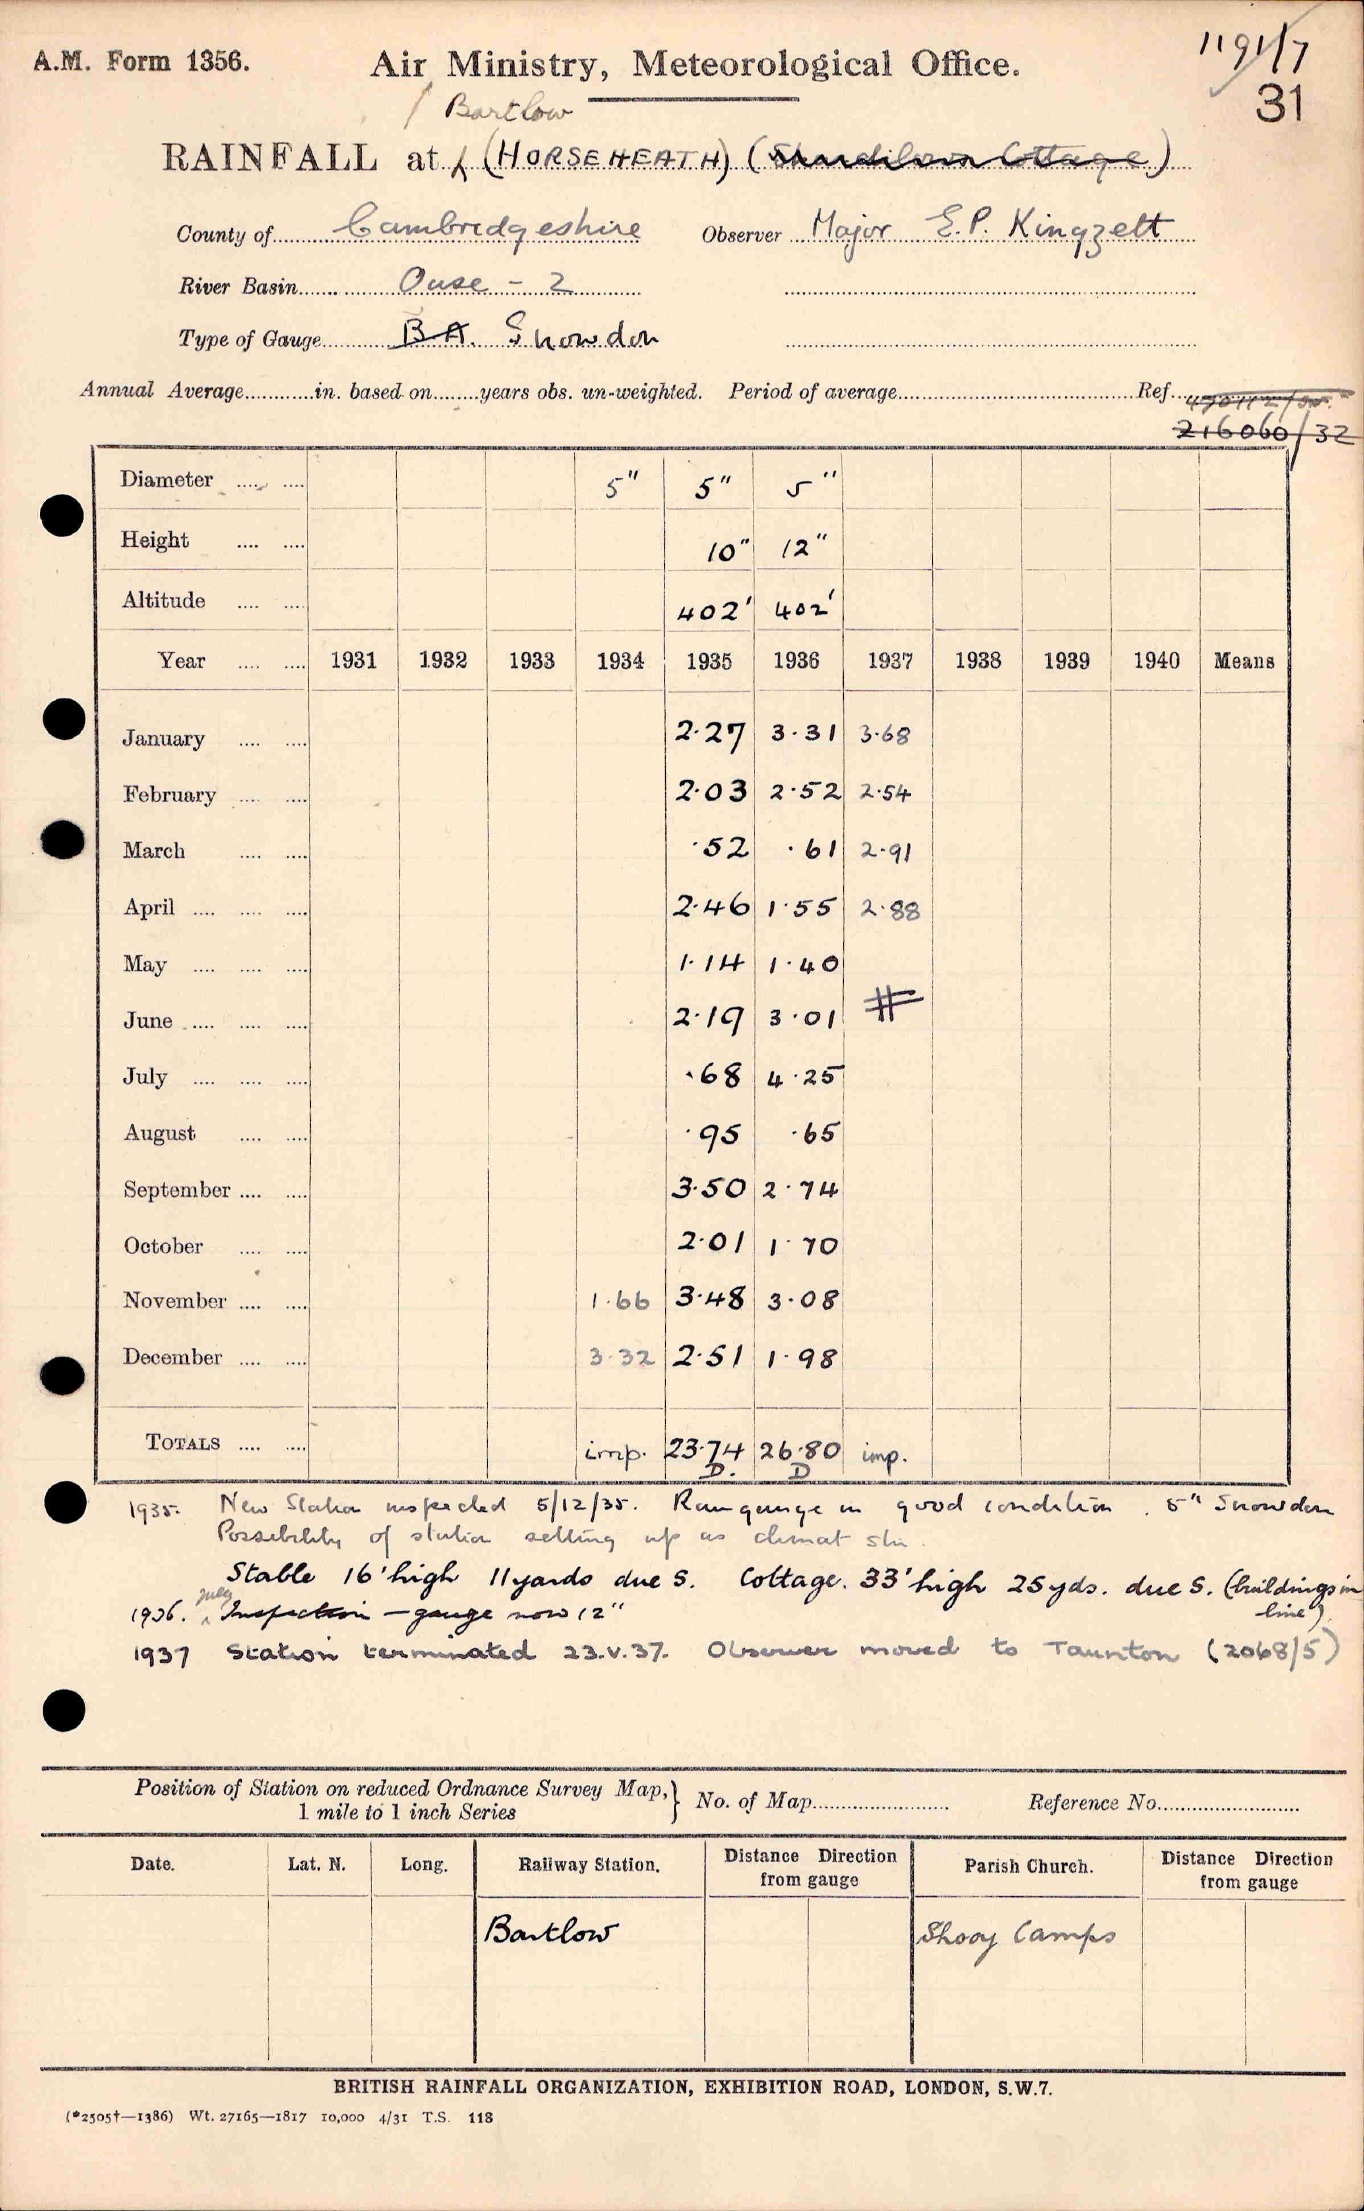 A.M. Form 1356.
Air Ministry, Meteorological Office.
1191/7
31
Bartlow
RAINFALL at (HORSEHEATH) ( Cottage)
County of Cambridgeshire Observer Major E.P. Kingzett
River Basin Ouse - 2
Type of Gauge B A. Snowdon
Annual Average in. based on years obs. un-weighted. Period of average Ref.
216060/32
Diameter 5" 5" 5"
Height 10" 12"
Altitude 402' 402'
Year 1931 1932 1933 1934 1935 1936 1937 1938 1939 1940 Means
January 2.27 3.31 3.68
February 2.03 2.52 2.54
March .52 .61 2.91
April 2.46 1.55 2.88
May 1.14 1.40
June 2.19 3.01 #
July .68 4.25
August .95 .65
September 3.50 2.74
October 2.01 1.70
November 1.66 3.48 3.08
December 3.32 2.51 1.98
TOTALS imp. 23.74 26.80 imp.
D. D
1935. New Station inspected 5/12/35. Raingauge in good condition. 5" Snowdon
Possibility of station setting up as climat stn.
Stable 16' high 11 yards due S. Cottage. 33' high 25 yds. due S. (buildings in line)
July
1936. Inspection - gauge now 12"
1937 Station terminated 23.V.37. Observer moved to Taunton (2068/5)
Position of Station on reduced Ordnance Survey Map,} No. of Map Reference No.
1 mile to 1 inch Series
Date. Lat. N. Long. Railway Station. Distance from gauge Direction Parish Church. Distance from gauge Direction
Bartlow Shudy Camps
BRITISH RAINFALL ORGANIZATION, EXHIBITION ROAD, LONDON, S.W.7.
(*2505†—1386) Wt. 27165—1817 10,000 4/31 T.S. 118